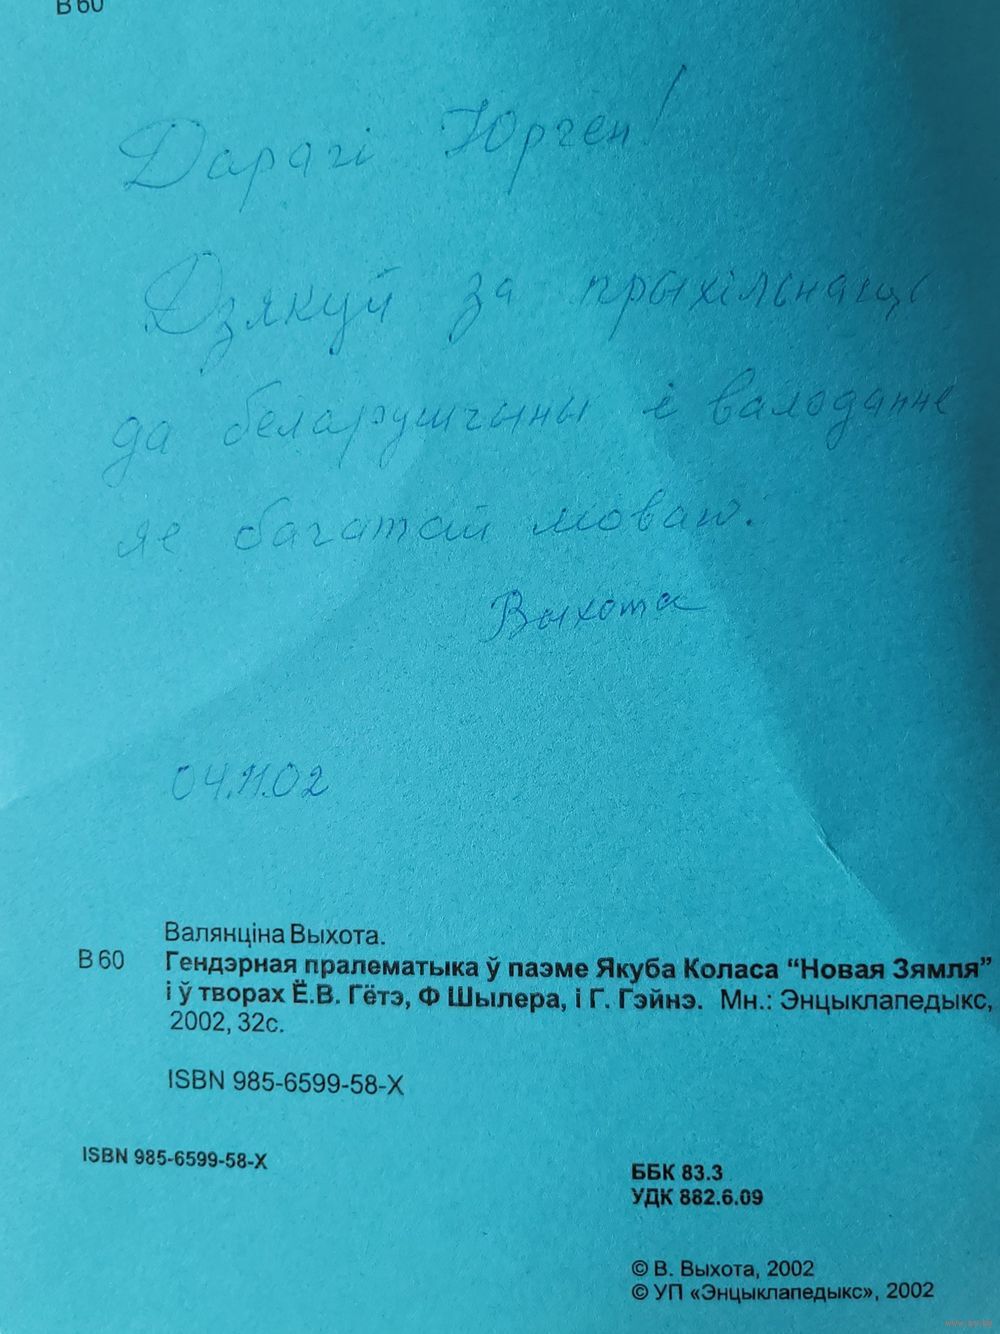 В 60
Дарагі Юрген!
Дзякуй за прыхільнасць
да беларушчыны і валоданне
яе багатай моваю.
Выхота
04.11.02
Валянціна Выхота.
В 60 Гендэрная пралематыка ў паэме Якуба Коласа “Новая Зямля”
і ў творах Ё.В. Гётэ, Ф Шылера, і Г. Гэйнэ. Мн.: Энцыклапедыкс,
2002, 32с.
ISBN 985-6599-58-X
ISBN 985-6599-58-X
ББК 83.3
УДК 882.6.09
© В. Выхота, 2002
© УП «Энцыклапедыкс», 2002